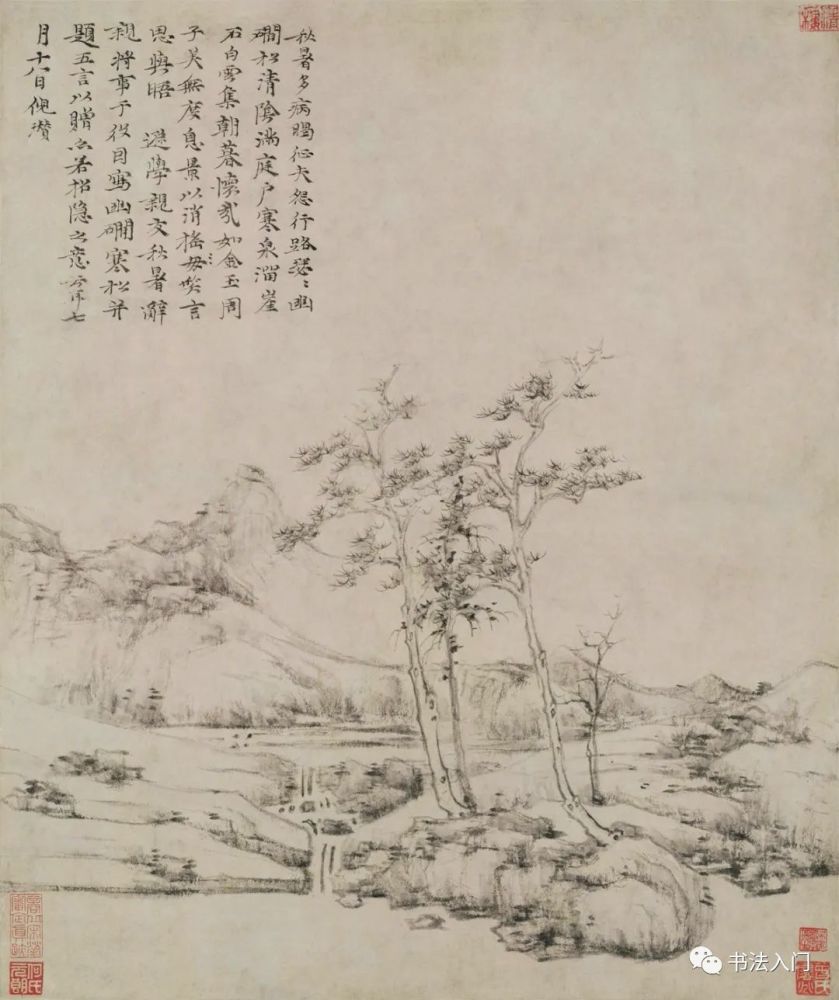 秋暑多病暍征夫怨行路瑟瑟幽
磵松清陰滿庭戶寒泉溜崖
石白雲集朝暮懷哉如金玉周
子美無度息景以消搖毋笑言
思與晤 遜學親友秋暑辭
親將事于役因寫幽磵寒松并
題五言以贈亦若招隱之意云耳七
月十八日倪瓚
书法入门